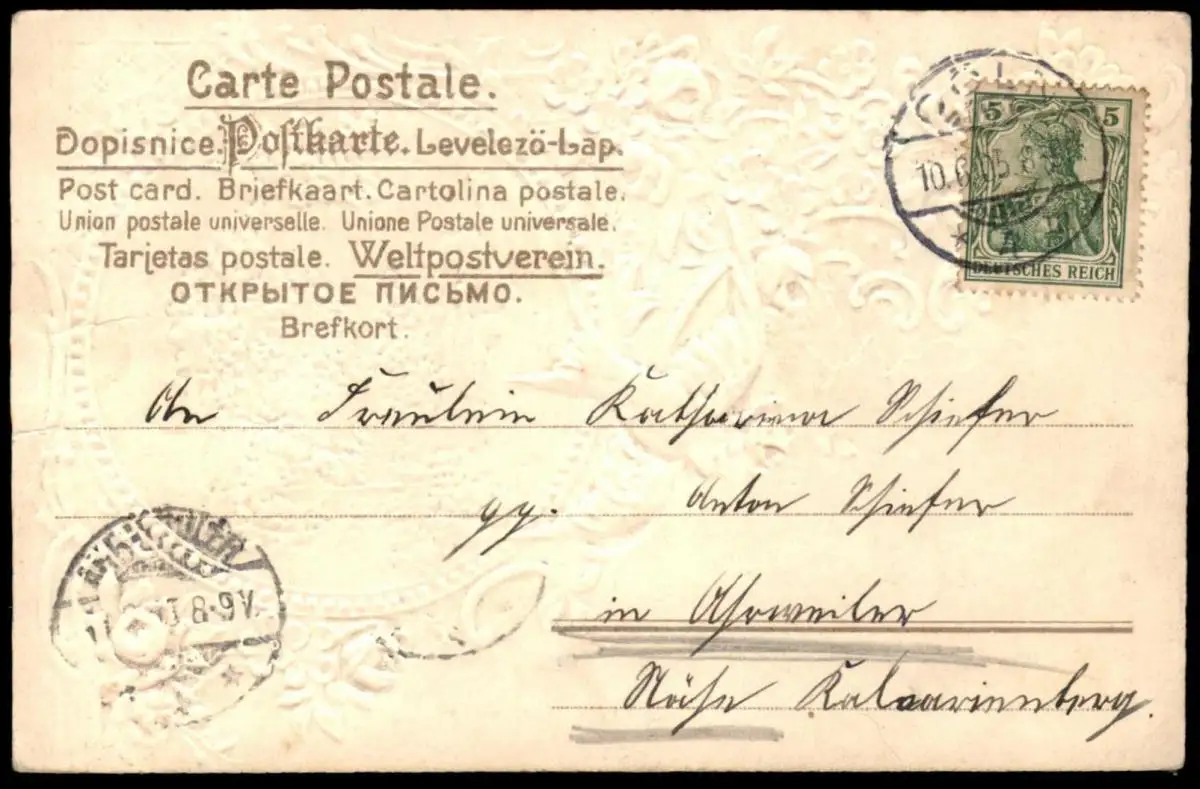 Carte Postale.
Dopisnice. Postkarte. Levelezö-Lap.
Post card. Briefkaart. Cartolina postale.
Union postale universelle. Unione Postale universale.
Tarjetas postale. Weltpostverein.
ОТКРЫТОЕ ПИСЬМО.
Brefkort.
5 5
10.6.05
DEUTSCHES REICH
An Fräulein Katharina Schiefer
Anton Schiefer
in Ahrweiler
Nähe Kalvarienberg.
8-9V.